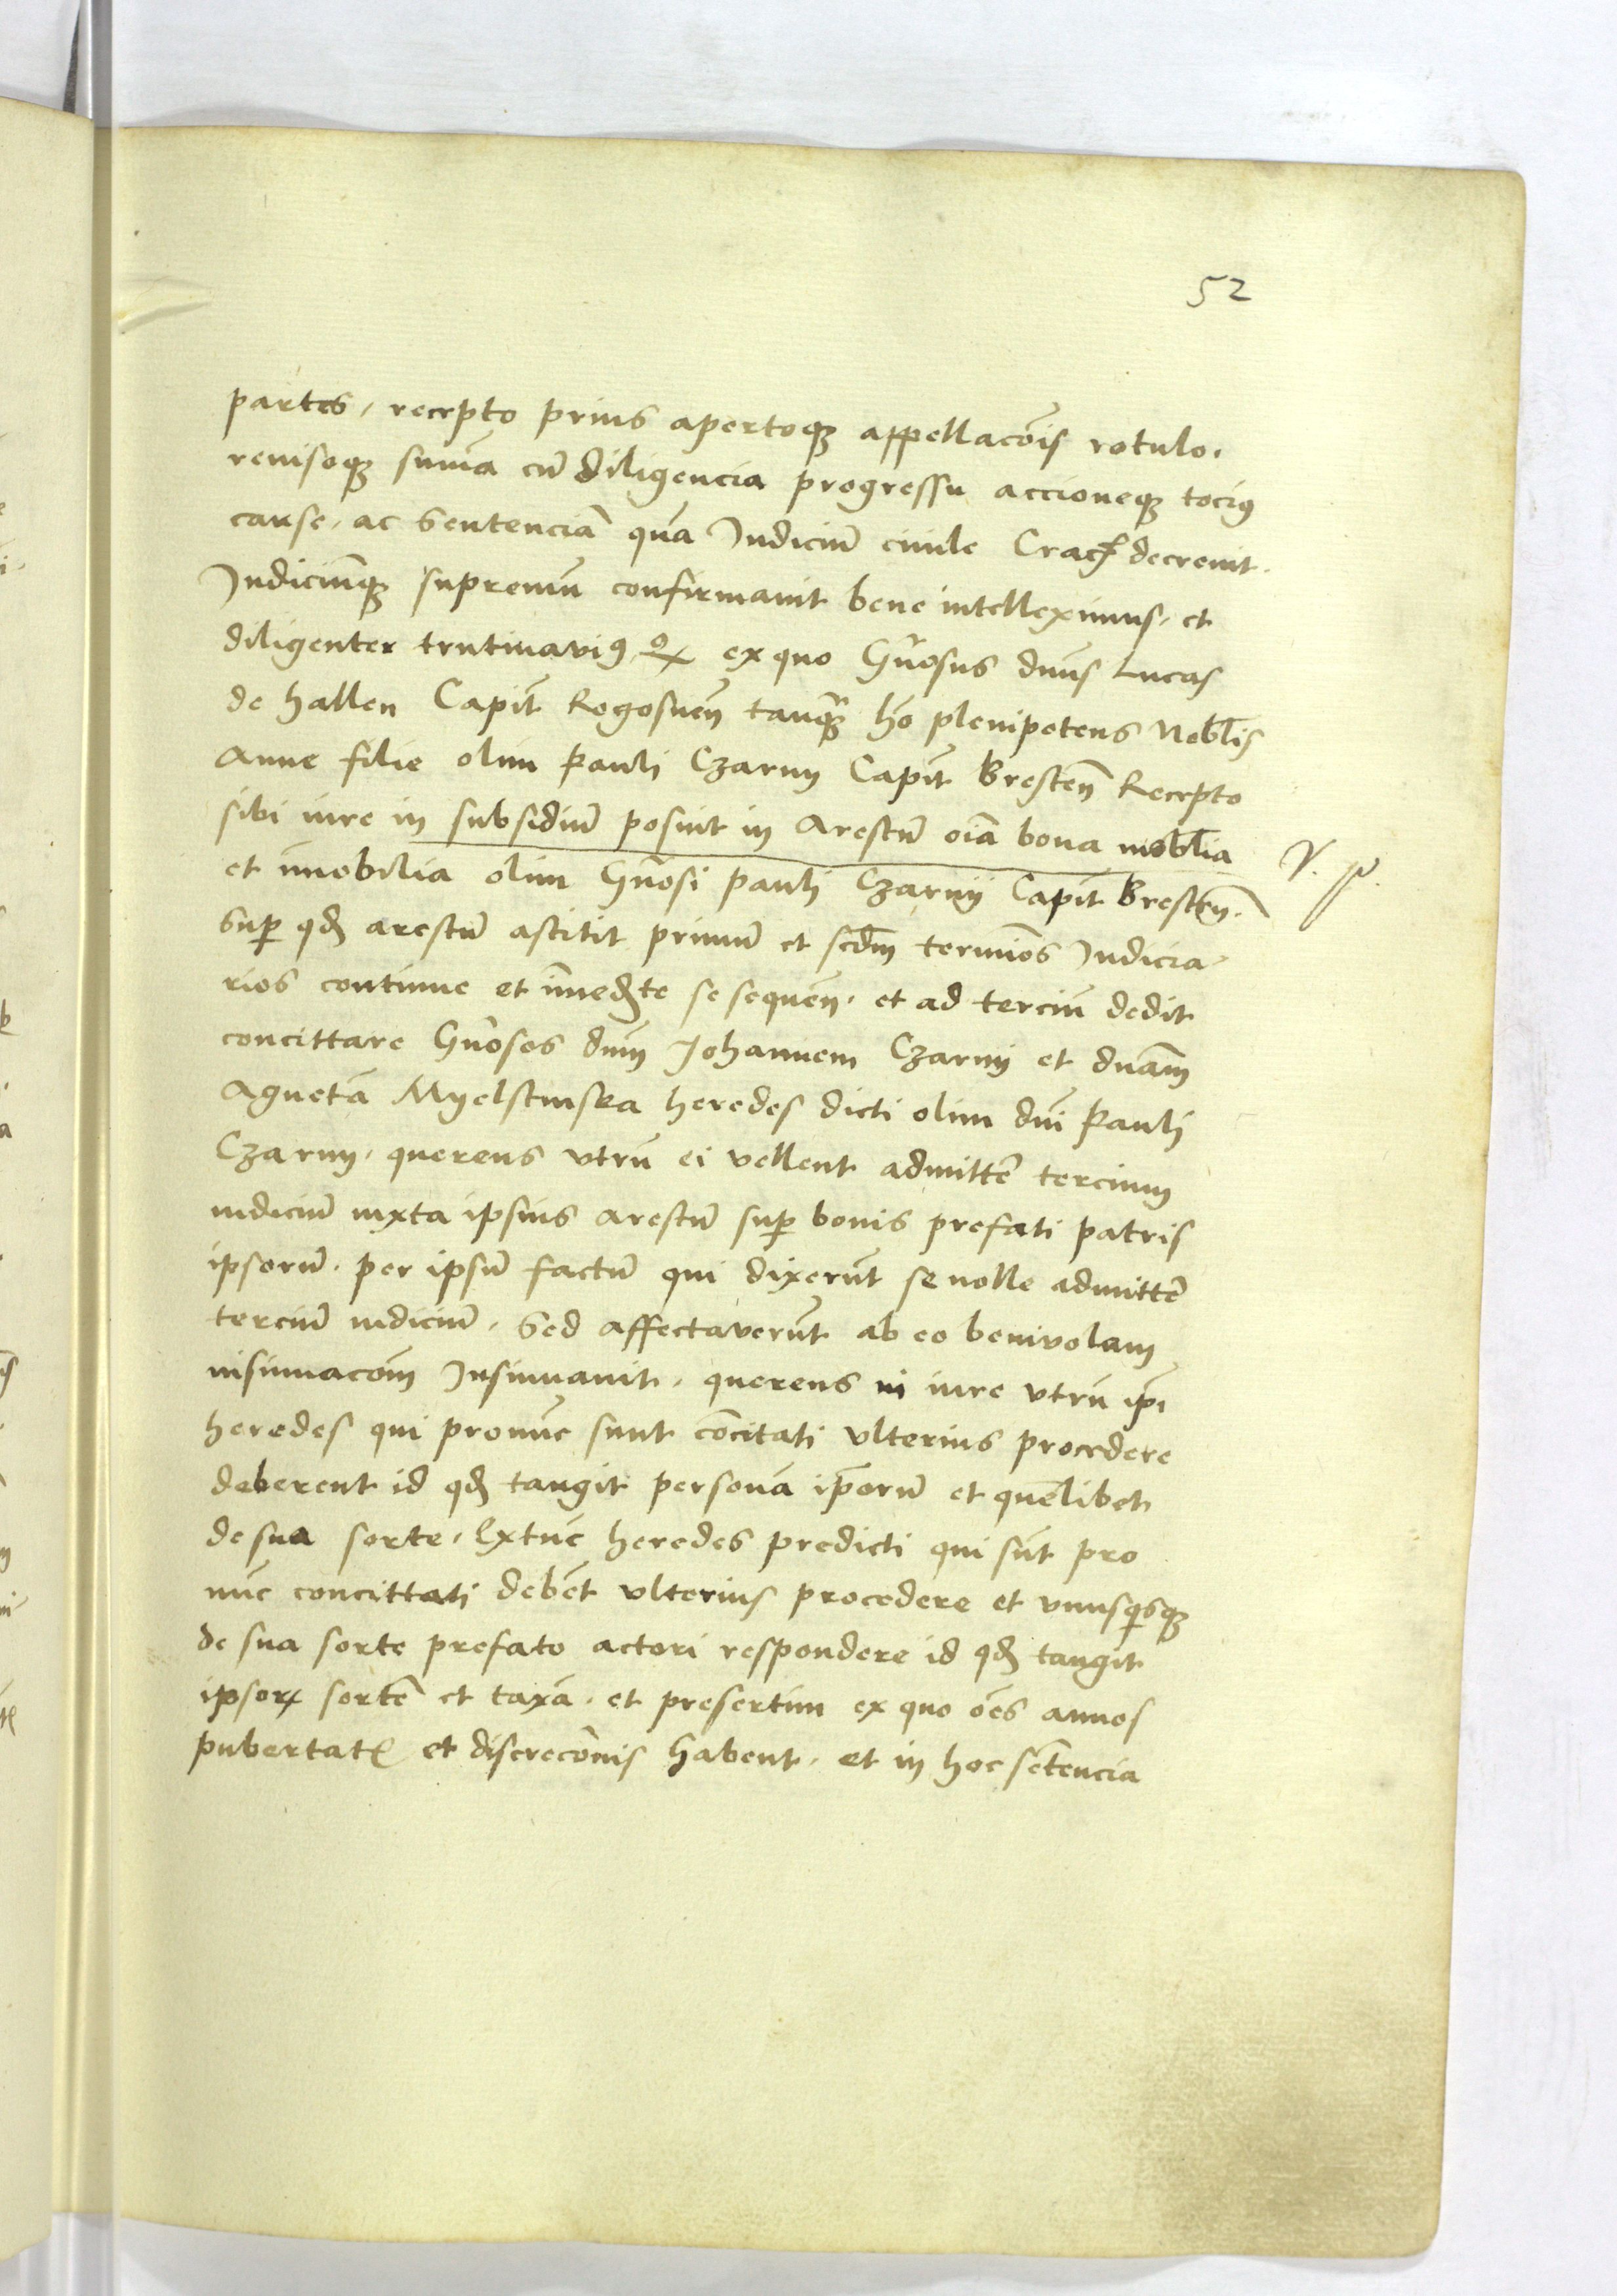 52
partes, recepto prius apertoqꝫ appellacōis rotulo.
reuisoqꝫ sum̄a cū diligencia progressu accioneqꝫ tociꝰ
cause, ac Sentenciā quā Iudiciū ciuile Cracꝭ decreuit.
Iudiciūqꝫ supremū confirmauit bene intelleximus, et
diligenter trutinaviꝰ, ꝙ ex quo Gn̄osus dn̄us Lucas
de hallen Capit̄ Rogosneñ tanqꝫ hō plenipotens Nobl̄is
Anne filie olim Pauli Czarny Capit̄ Bresteñ Recepto
sibi iure in subsidiū posuit in Arestū oīa bona mobl̄ia
et īmobilia olim Gn̄osi Pauli Czarny Capit̄ Bresteñ.
Suꝑ qđ arestū astitit primū et scd̄m termīos Iudicia
rios continue et īmed̄te se sequeñ, et ad terciū dedit
concittare Gn̄osos dn̄m Johannem Czarny et dn̄am
Agnetā Myelstinska heredes dicti olim dn̄i Pauli
Czarny, querens vtrū ei vellent admittē tercium
iudiciū iuxta ipsius arestū suꝑ bonis prefati patris
ipsorū, per ipsū factū qui dixerūt se nolle admittē
terciū iudiciū, Sed affectaverūt ab eo benivolam
insinuacōm Insinuauit, querens in iure vtrū ip̄i
heredes qui pronūc sunt cōcitati vlterius procedere
deberent id qđ tangit personā ip̄orū et quēlibet
de sua sorte, Extūc heredes predicti qui sūt pro
nūc concittati debēt vlterius procedere et vnusqsqꝫ
de sua sorte prefato actori respondere id qđ tangit
ipsoꝝ sortē et taxā, et presertim ex quo ōes annos
pubertatꝭ et discrecōnis habent, et in hoc sētencia